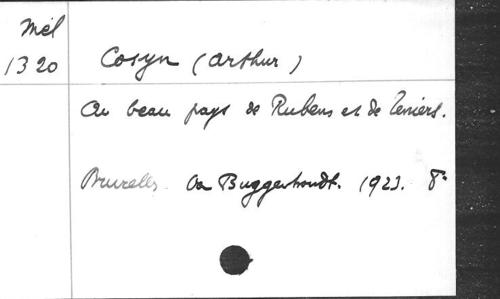 Mél
1320
Cosyn (Arthur)
Au beau pays de Rubens et de Teniers.
Bruxelles. Van Buggenhoudt. 1923. 8°